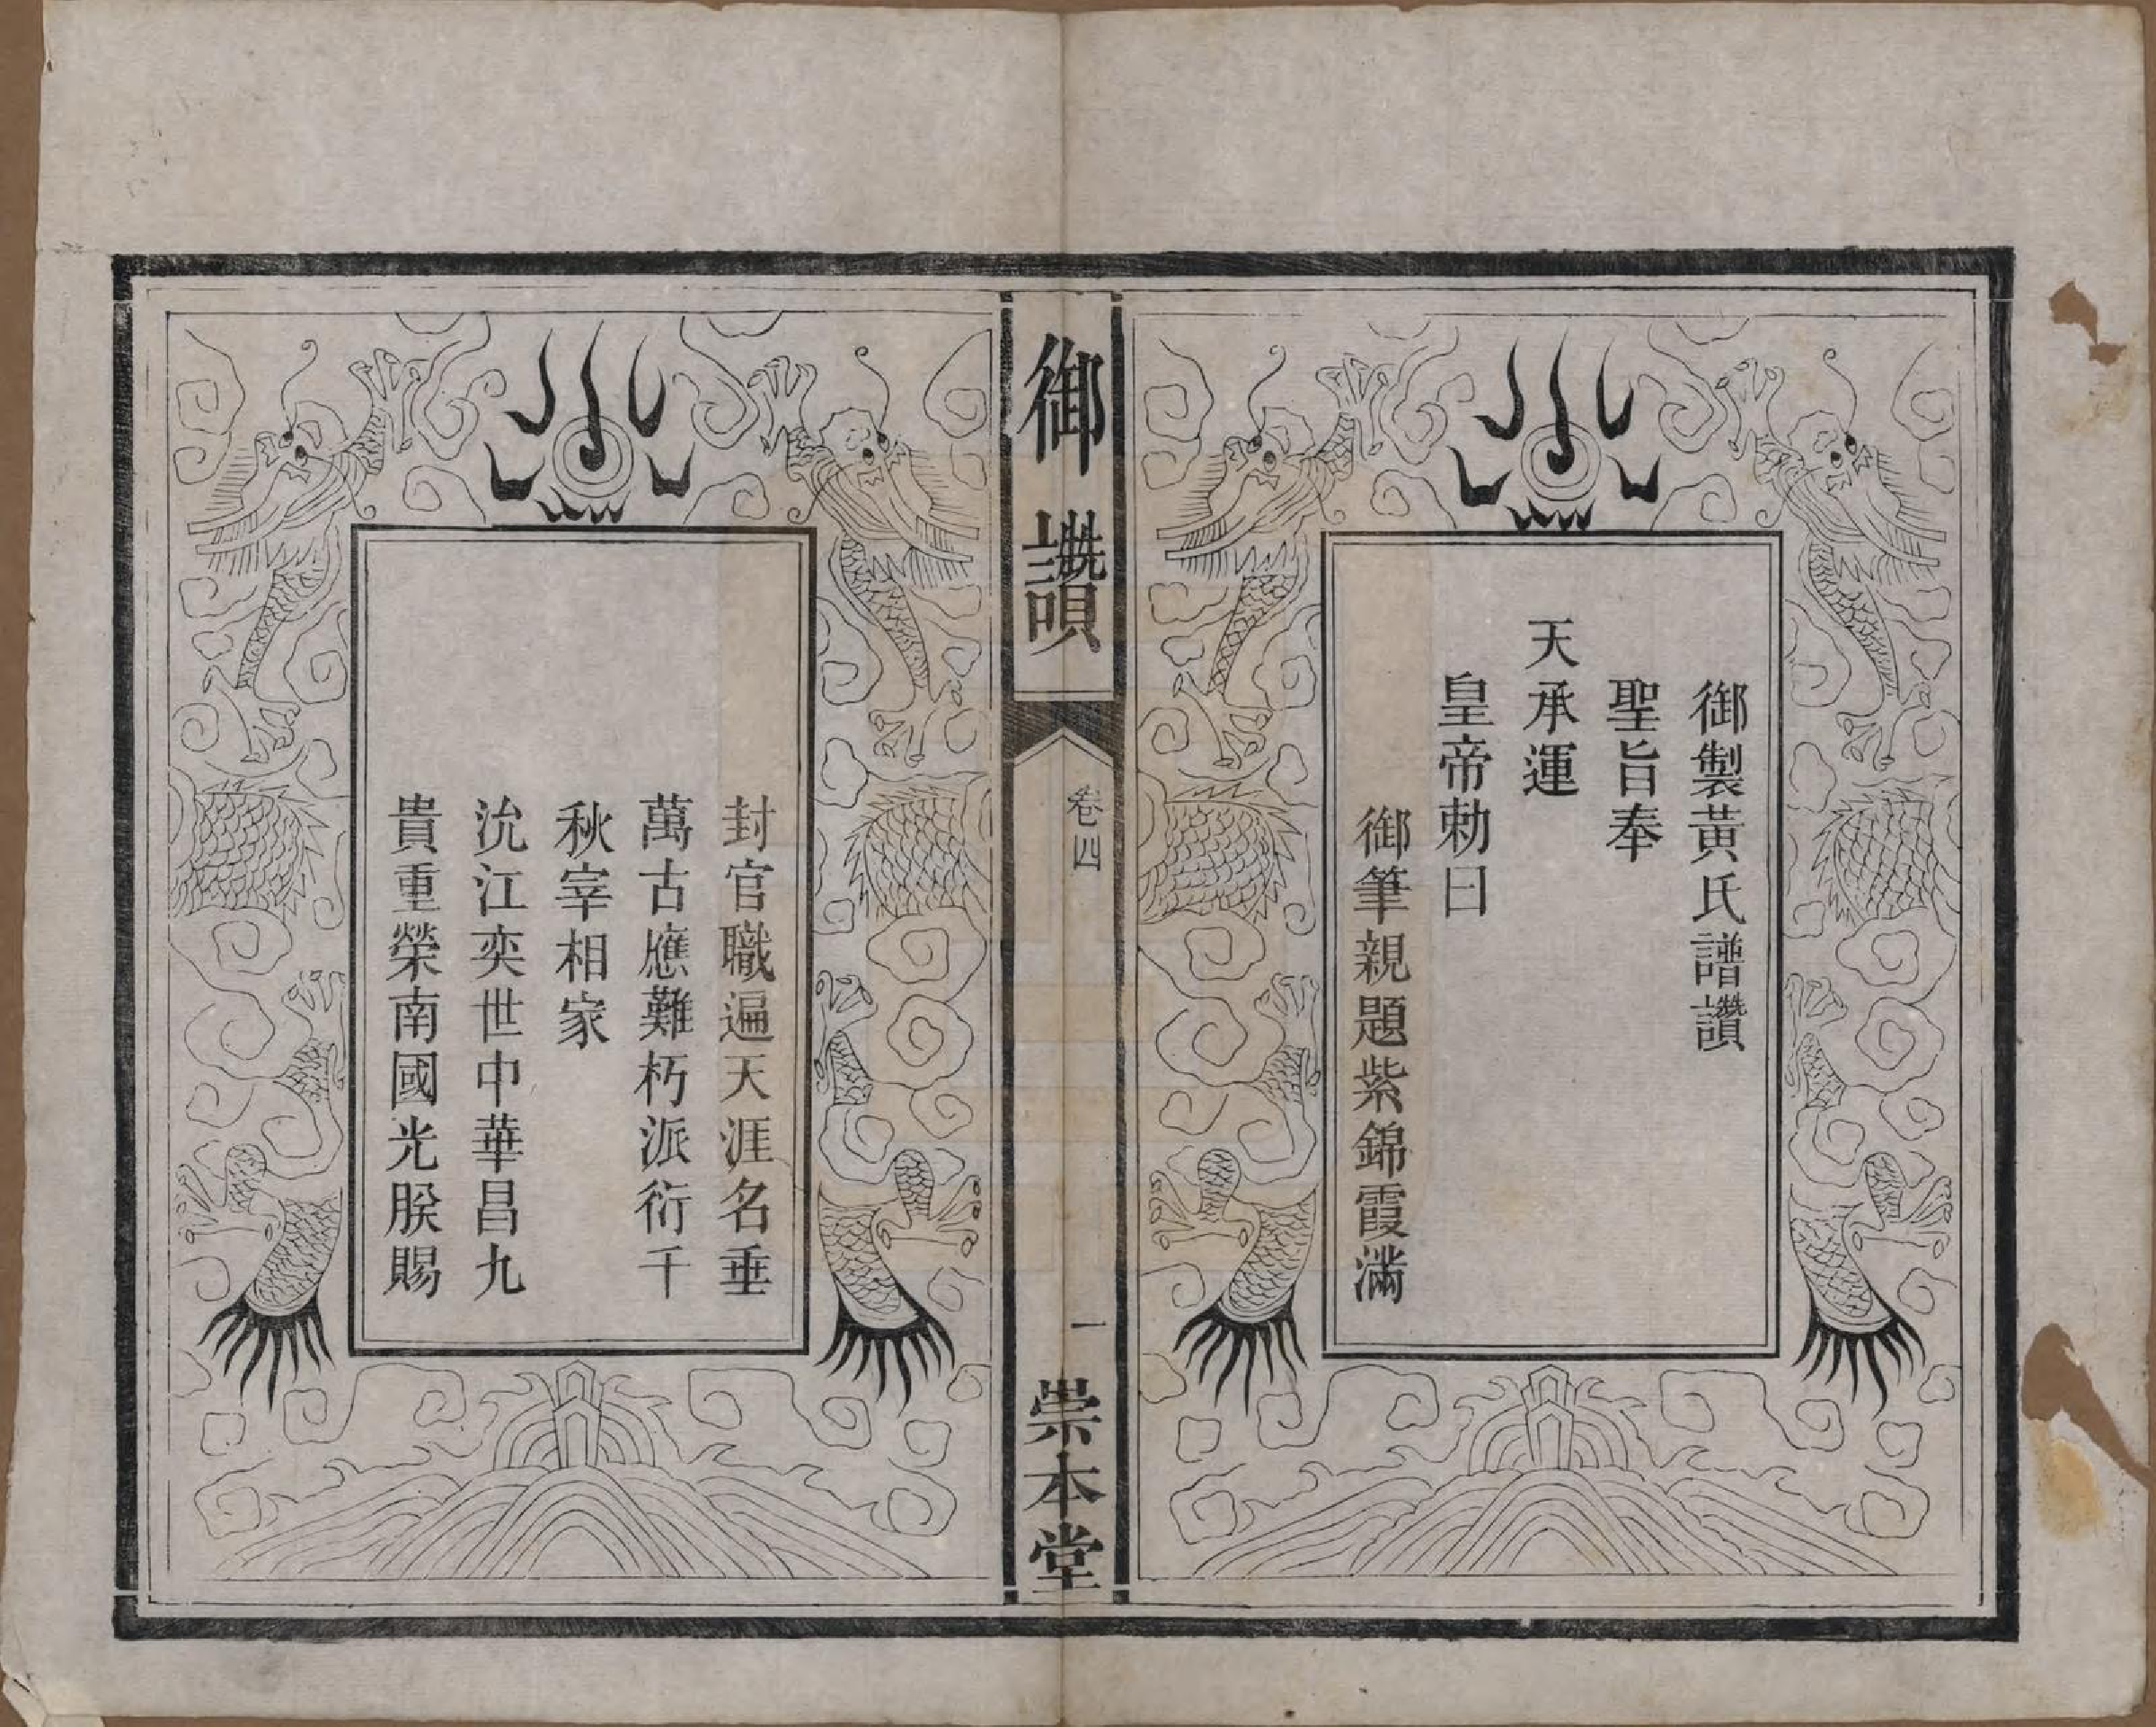 御製黃氏譜讚
聖旨奉
天承運
皇帝勅曰
御筆親題紫錦霞滿
御讚
卷四
一
崇本堂
封官職遍天涯名垂
萬古應難朽派衍千
秋宰相家
沇江奕世中華昌九
貴重榮南國光朕賜